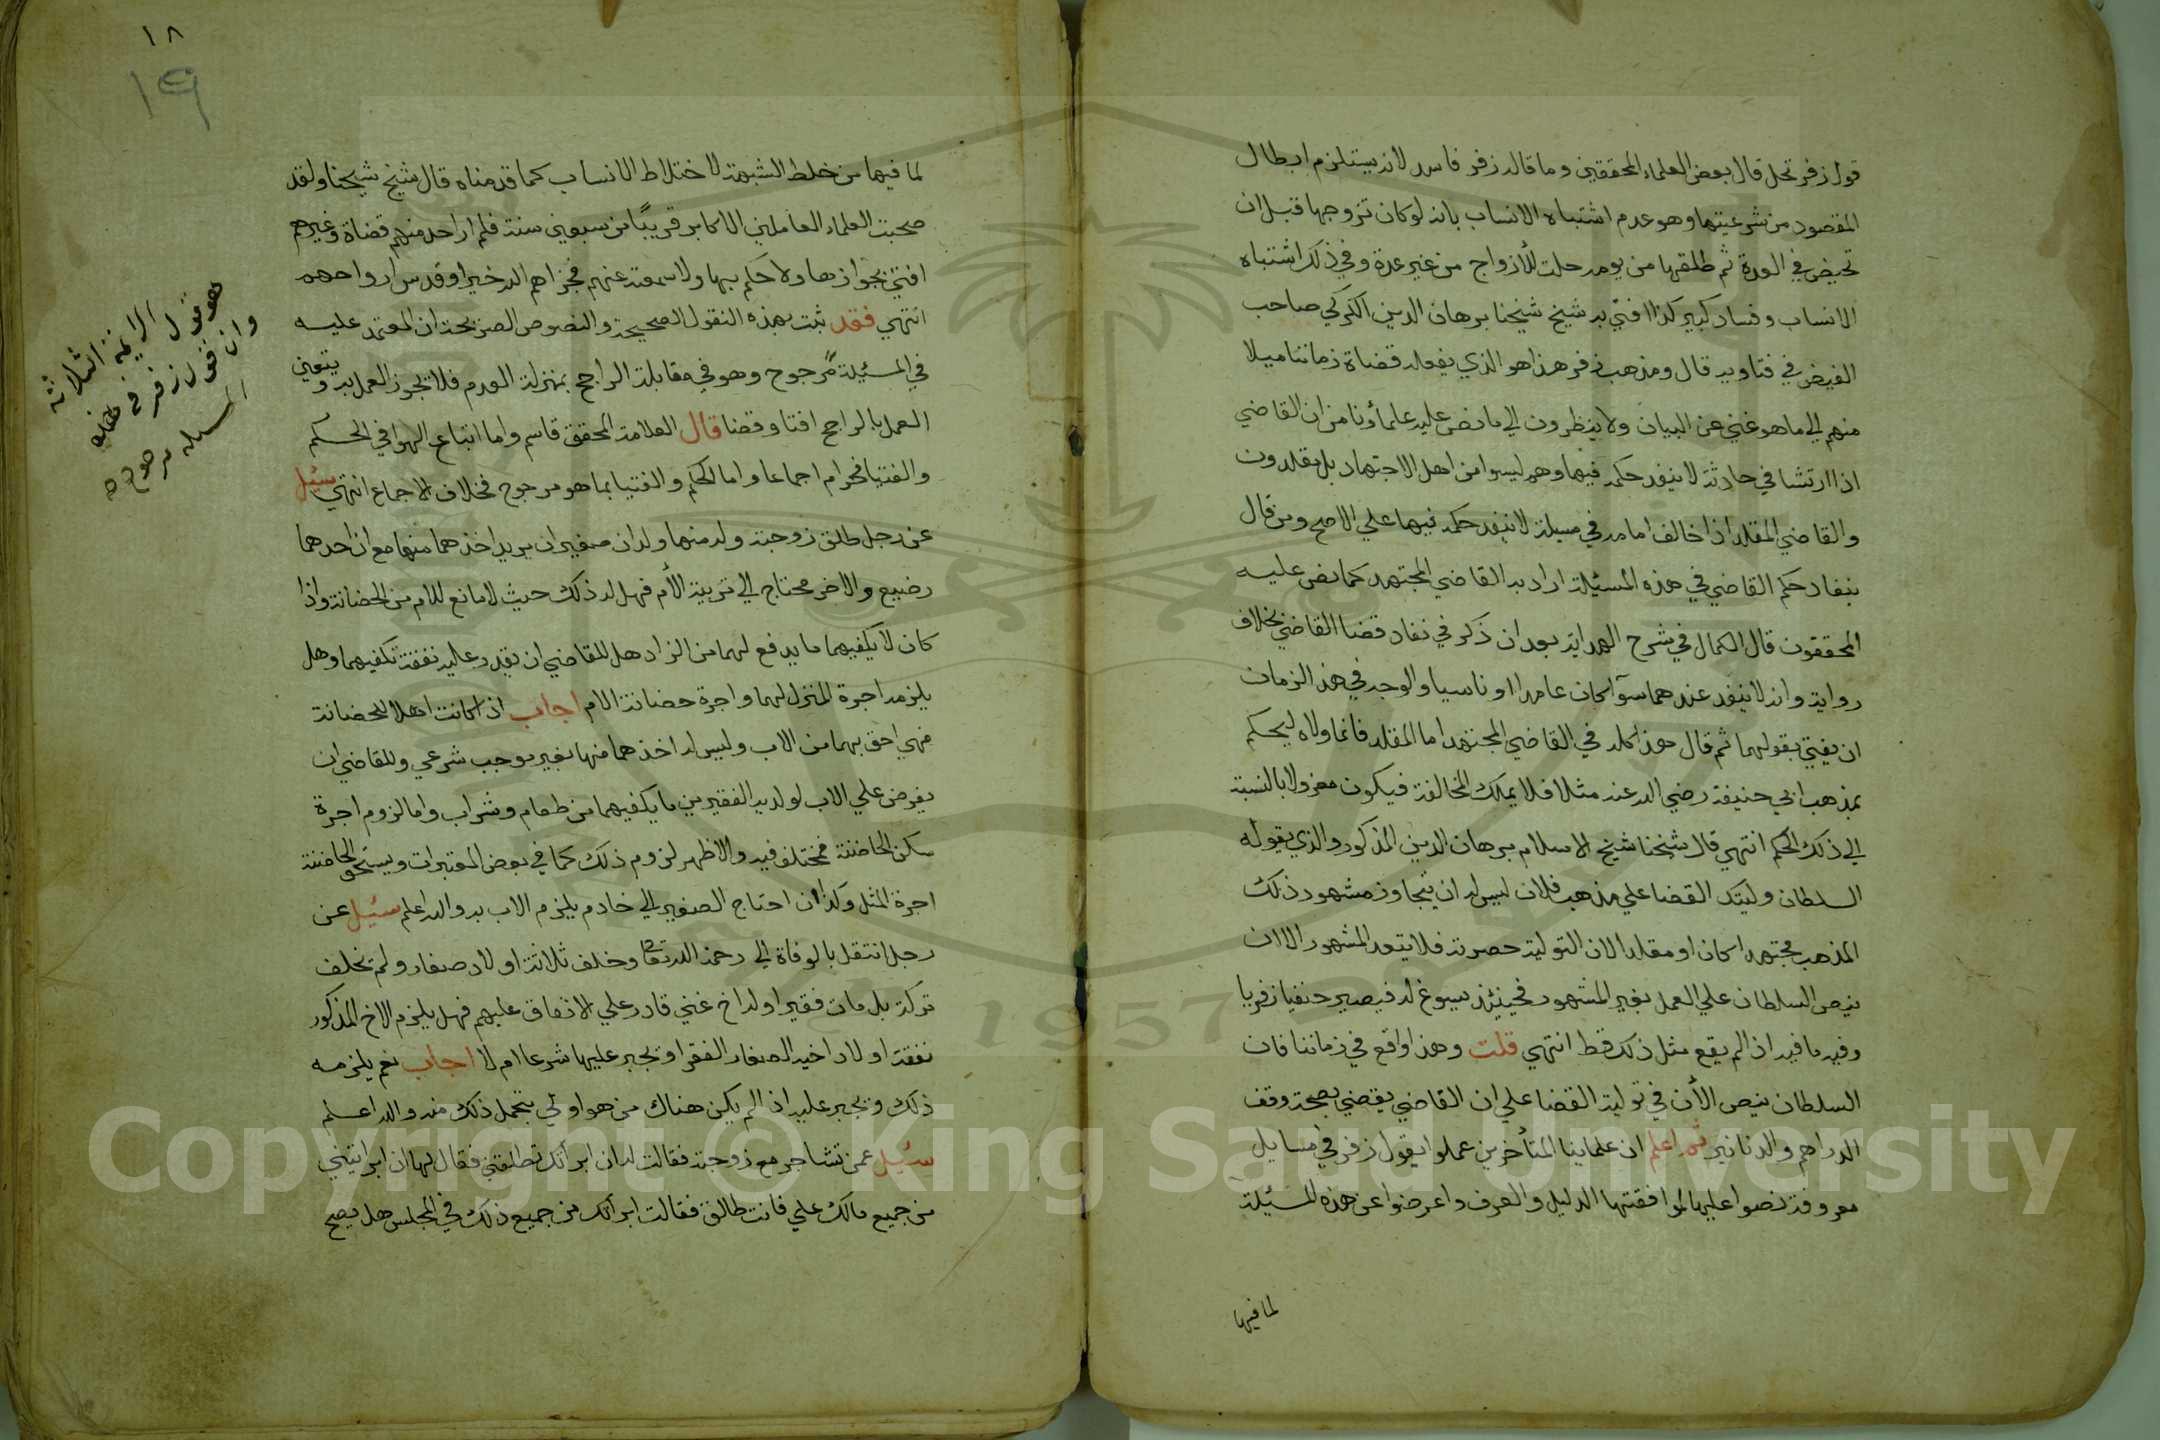 قول زفر تحل قال بعض العلماء المحققين وما قاله زفر فاسد لانه يستلزم ابطال
المقصود من شرعيتها وهو عدم اشتباه الانساب بانه لو كان تزوجها قبل ان
تحيض في العدة ثم طلقها من يومه حلت للأزواج من غير عدة وفي ذلك اشتباه
الانساب وفساد كبير كذا افتي به شيخ شيخنا برهان الدين الكركي صاحب
الفيض في فتاويه قال ومذهب زفر هذا هو الذي يفعله قضاة زماننا ميلا
منهم الي ما هو غني عن البيان ولا ينظرون الي ما نص عليه علماؤنا من ان القاضي
اذا ارتشا في حادثة لا ينفد حكمه فيها وهم ليسوا من اهل الاجتهاد بل مقلدون
والقاضي المقلد اذا خالف امامه في مسيلة لا ينفد حكمه فيها علي الاصح ومن قال
بنفاد حكم القاضي في هذه المسئيلة اراد به القاضي المجتهد كما نص عليه
المحققون قال الكمال في شرح الهداية بعد ان ذكر في نفاد قضا القاضي بخلاف
رواية وانه لا ينفد عندهما سوآ كان عامدا او ناسيا والوجه في هذا الزمان
ان يفتي بقولهما ثم قال هذا كله في القاضي المجتهد اما المقلد فانما ولاه ليحكم
بمذهب ابي حنيفة رضي الله عنه مثلا فلا يملك المخالفة فيكون معزولا بالنسبة
الي ذلك الحكم انتهي قال شيخنا شيخ الاسلام برهان الدين المذكور والذي يقوله
السلطان وليتك القضا علي مذهب فلان ليس له ان يتجاوز مشهور ذلك
المذهب مجتهدا كان او مقلدا لان التولية حصرته فلا يتعد المشهور الا ان
ينص السلطان علي العمل بغير المشهور فحينئذ يسوغ له فيصير حنفيا زفريا
وفيه ما فيه اذ الم يقع مثل ذلك قط انتهي قلت وهذا واقع في زماننا فان
السلطان ينص الأن في تولية القضا علي ان القاضي يقضي بصحة وقف
الدراهم والدنانير ثم اعلم ان علماينا المتأخرين عملوا بقول زفر في مسايل
معروفة نصوا عليها لموافقتها الدليل والعرف واعرضوا عن هذه المسئيلة
لما فيها
١٨
١٩
لما فيها من خلط الشبهة لاختلاط الانساب كما قدمناه قال شيخ شيخنا ولقد
صحبت العلماء العاملين الاكابر قريبًا من سبعين سنة فلم ار احد منهم قضاة وغيرهم
افتي بجوازها ولا حكم بها ولا سمعته عنهم فجزاهم الله خيرا وقدس ارواحهم
انتهي فقد ثبت بهذه النقول الصحيحة والنصوص الصريحة ان المعتمد عليه
في المسئيلة مرجوح وهو في مقابلة الراجح بمنزلة العدم فلا يجوز العمل به ويتعين
العمل بالراجح افتا وقضا قال العلامة المحقق قاسم واما اتباع الهوا في الحكم
والفتيا فحرام اجماعا واما الحكم والفتيا بما هو مرجوح فخلاف الاجماع انتهي سئيل
عن رجل طلق زوجته وله منها ولدان صغيران يريد اخذهما منها مع ان احدهما
رضيع والاخر محتاج الي تربية الأم فهل له ذلك حيث لا مانع للام من الحضانة واذا
كان لا يكفيهما ما يدفع لهما من الزاد هل للقاضي ان يقدر عليه نفقة تكفيهما وهل
يلزمه اجرة المنزل لهما واجرة حضانة الام اجاب اذا كانت اهلا للحضانة
فهي احق بهما من الاب وليس له اخذهما منها بغير موجب شرعي وللقاضي ان
يفرض علي الاب لولديه الفقيرين ما يكفيهما من طعام وشراب واما لزوم اجرة
سكن الحاضنة فمختلف فيه والأظهر لزوم ذلك كما في بعض المعتبرات ويستحق الحاضنة
اجرة المثل وكذا ان احتاج الصغير الي خادم يلزم الاب به والله اعلم سئيل عن
رجل انتقل بالوفاة الي رحمة الله تعا وخلف ثلاثة اولاد صغار ولم يخلف
تركة بل مات فقيرا وله اخ غني قادر علي الانفاق عليهم فهل يلزم الاخ المذكور
نفقة اولاد اخيه الصغار الفقرا ويجبر عليها شرعا ام لا اجاب نعم يلزمه
ذلك ويجبر عليه اذ الم يكن هناك من هو اولي بتحمل ذلك منه والله اعلم
سئيل عمن تشاجر مع زوجته فقالت له ان ابرأتك تطلقني فقال لها ان ابراتيني
من جميع مالك علي فانت طالق فقالت ابرأتك من جميع ذلك في المجلس هل يصح
الايمة الثلاثة
وان قول زفر في هذه
المسيلة مرجوح
Copyright © King Saud University
1957